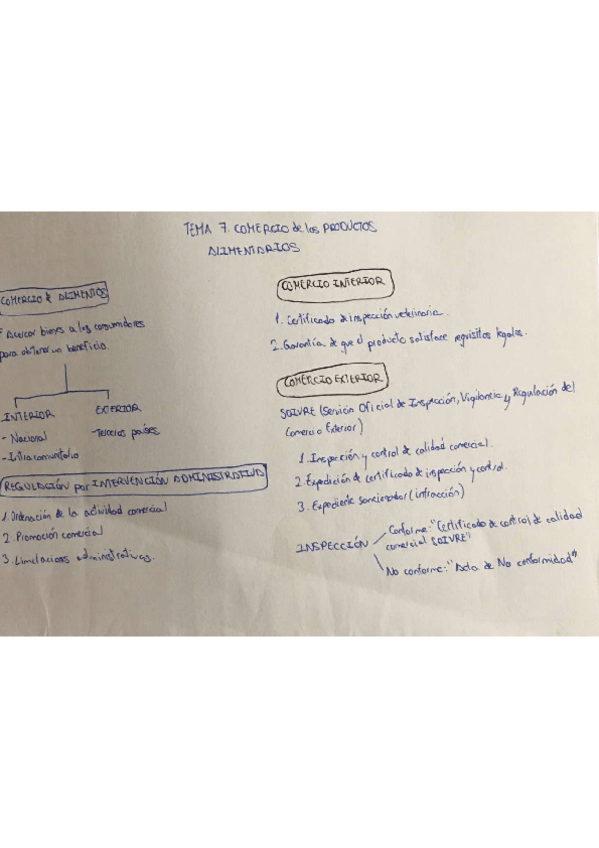 TEMA 7. COMERCIO de los PRODUCTOS
ALIMENTARIOS
COMERCIO ALIMENTOS
Acercar bienes a los consumidores
para obtener un beneficio.
INTERIOR
- Nacional
- Intracomunitario
EXTERIOR
- Terceros países
REGULACIÓN por INTERVENCIÓN ADMINISTRATIVA
1. Ordenación de la actividad comercial
2. Promoción comercial
3. Limitaciones administrativas.
COMERCIO INTERIOR
1. Certificado de inspección veterinaria.
2. Garantía de que el producto satisface requisitos legales.
COMERCIO EXTERIOR
SOIVRE (Servicio Oficial de Inspección, Vigilancia y Regulación del
Comercio Exterior)
1. Inspección y control de calidad comercial.
2. Expedición de certificado de inspección y control.
3. Expediente sancionador (infracción)
INSPECCIÓN
Conforme: "Certificado de control de calidad
comercial SOIVRE"
No conforme: "Acta de No conformidad"